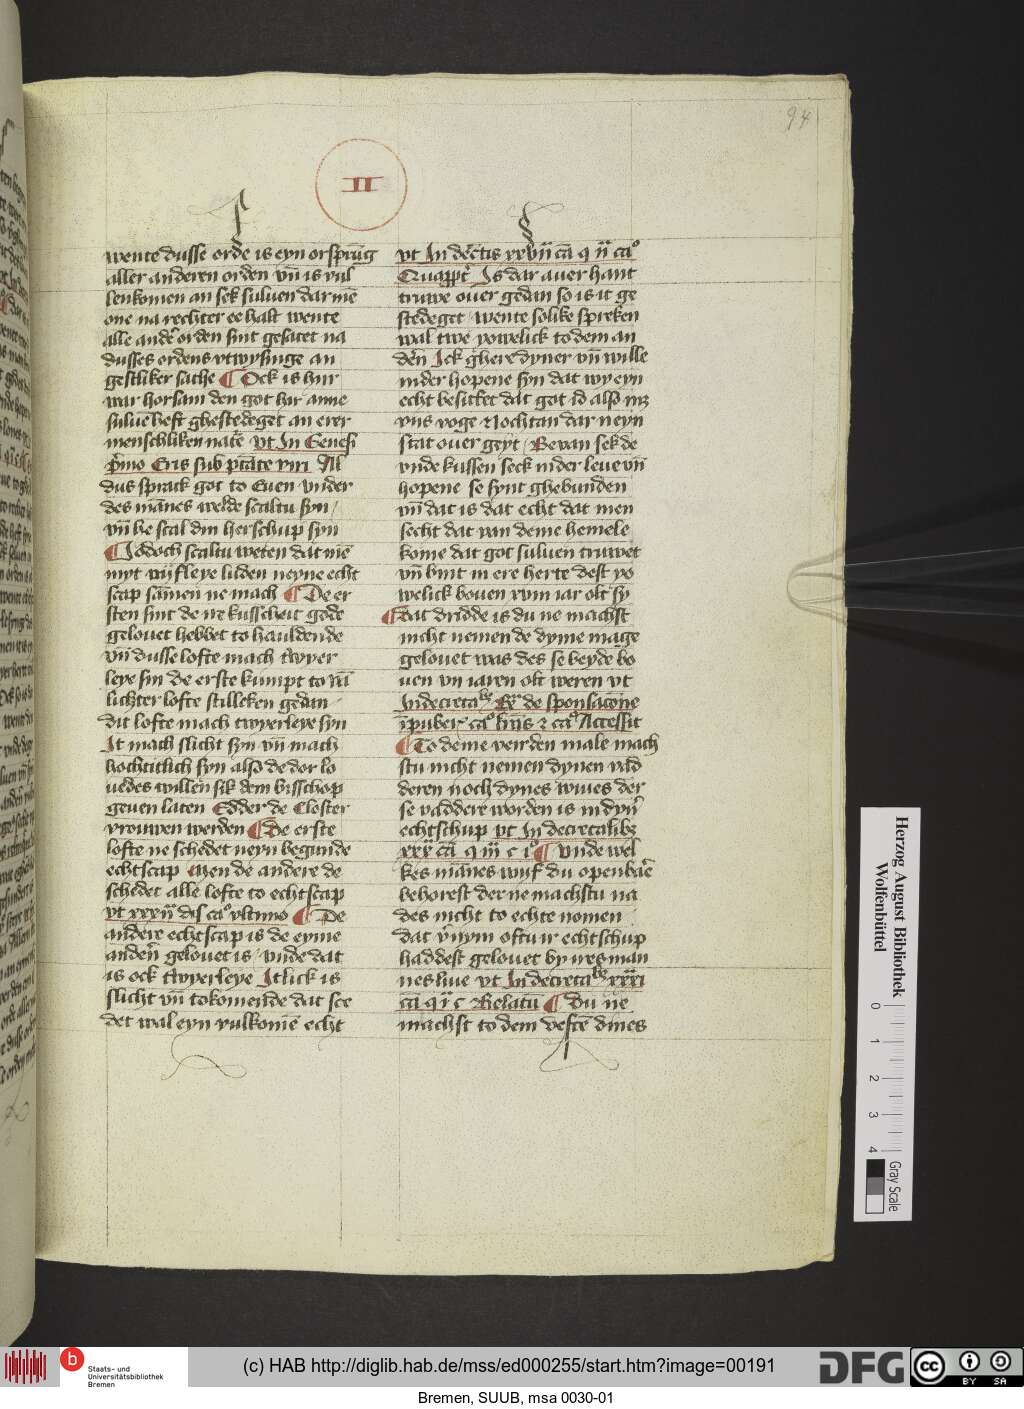 94
II
wente dusse orde is eyn orsprūg
aller anderen orden vn̄ is vul
lenkomen an sek suluen dar mē
one na rechter ee halt wente
alle andeˀ orden sint gesatet na
dusses ordens vtwysinge an
gestliker sache ¶ Ock is hur
war horsam den got hir anne
sulue heft ghestedeget an erer
menschliken nateˀ vt In Genesi
pˀmo Eris sub ptāte viri Al
dus sprack got to Euen vnder
des mānes welde scaltu syn
vn̄ he scal din herschup syn
¶ Jodoch scaltu weten dat mē
myt vijfleye luden neyne echt
scap sāmen ne mach ¶ De er
sten sint de ire kusscheit gode
gelouet hebbet to hauldende
vn̄ dusse lofte mach twyer
leye sin de erste kumpt to vā
lichter lofte stilleken gedan
dit lofte mach twyerleye syn
It mach slicht syn vn̄ mach
hochtitlich syn also de dor lo
uedes willen sik dem bisschop
geuen laten Edder de Closter
vrouwen werden ¶ De erste
lofte ne schedet neyn begunde
echtscap Men de andere de
schedet alle lofte to echtscap
vt xxxii dis ca° vltimo ¶ De
andere echtscap is de eyme
anderˀ gelouet is vnde dat
is ock twyerleye Itlick is
slicht vn̄ tokomende dat sce
det wal eyn vulkomē echt
vt In decˀtis xxvii cā q ii ca°
Quapptˀ Is dar auer hant
truwe ouer gedan so is it ge
stedeget wente solike spreken
wal twe yowelick to dem an
derˀn Ick ghere dyner vn̄ wille
in der hopene syn dat wy eyn
echt besittet dat got id also mz
vns voge Nochtan dar neyn
stat ouer geyt Bevan sek de
vnde kussen seck in der leue vn̄
hopene se synt ghebunden
vn̄ dat is dat echt dat men
secht dat van deme hemele
kome dat got suluen truwet
vn̄ bint in ere herte dest yo
welick bouen xviii iar olt sy
¶ dat dridde is du ne machst
nicht nemen de dyme mage
gelouet was des se beyde bo
uen vn iaren olt weren vt
In decretalibꝰ Exˀ de sponsacōne
īpuberˀ ca° lrīs ⁊ ca° Accessit
¶ To deme veirden male mach
stu nicht nemen dynen vad
deren noch dynes wiues der
se vaddere worden is in dynˀ
echtschup vt In decretalibz
xxx cā q iii c i° ¶ Vnde wel
kes mānes wyf du openbāˀe
behorest der ne machstu na
des nicht to echte nomen
dat vˀnym oftu ir echtschup
haddest gelouet by ires man
nes liue vt In decretalibꝰ xxxi
cā q i c Relatū ¶ Du ne
machst to dem veftē dines
Herzog August Bibliothek
Wolfenbüttel
0
1
2
3
4
Gray Scale
b
Staats- und
Universitätsbibliothek
Bremen
(c) HAB http://diglib.hab.de/mss/ed000255/start.htm?image=00191
DFG
cc
BY SA
Bremen, SUUB, msa 0030-01